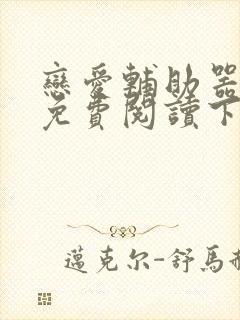 戀愛輔助器
免費閱讀下
邁克尔-舒馬赫